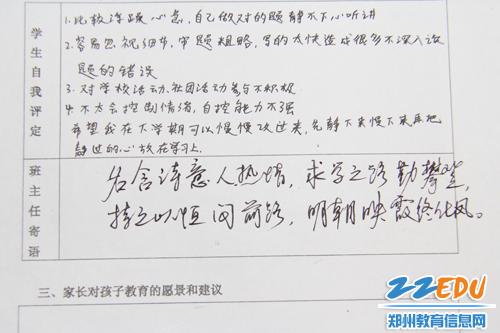 学生自我评定
1.比较浮躁心急,自己做对的题静不下心听讲
2.容易忽视细节,审题粗略,写的太快造成很多不深入读
题的错误
3.对学校活动、社团活动参与不积极
4.不太会控制情绪,自控能力不强
希望我在下学期可以慢慢改过来,先静下来慢下来再把
静过的心放在学习上.
班主任寄语
名含诗意人热情,求学之路勤攀登,
持之以恒问前路,明朝映霞终化风。
三、家长对孩子教育的愿景和建议
ZZEDU
郑州教育信息网